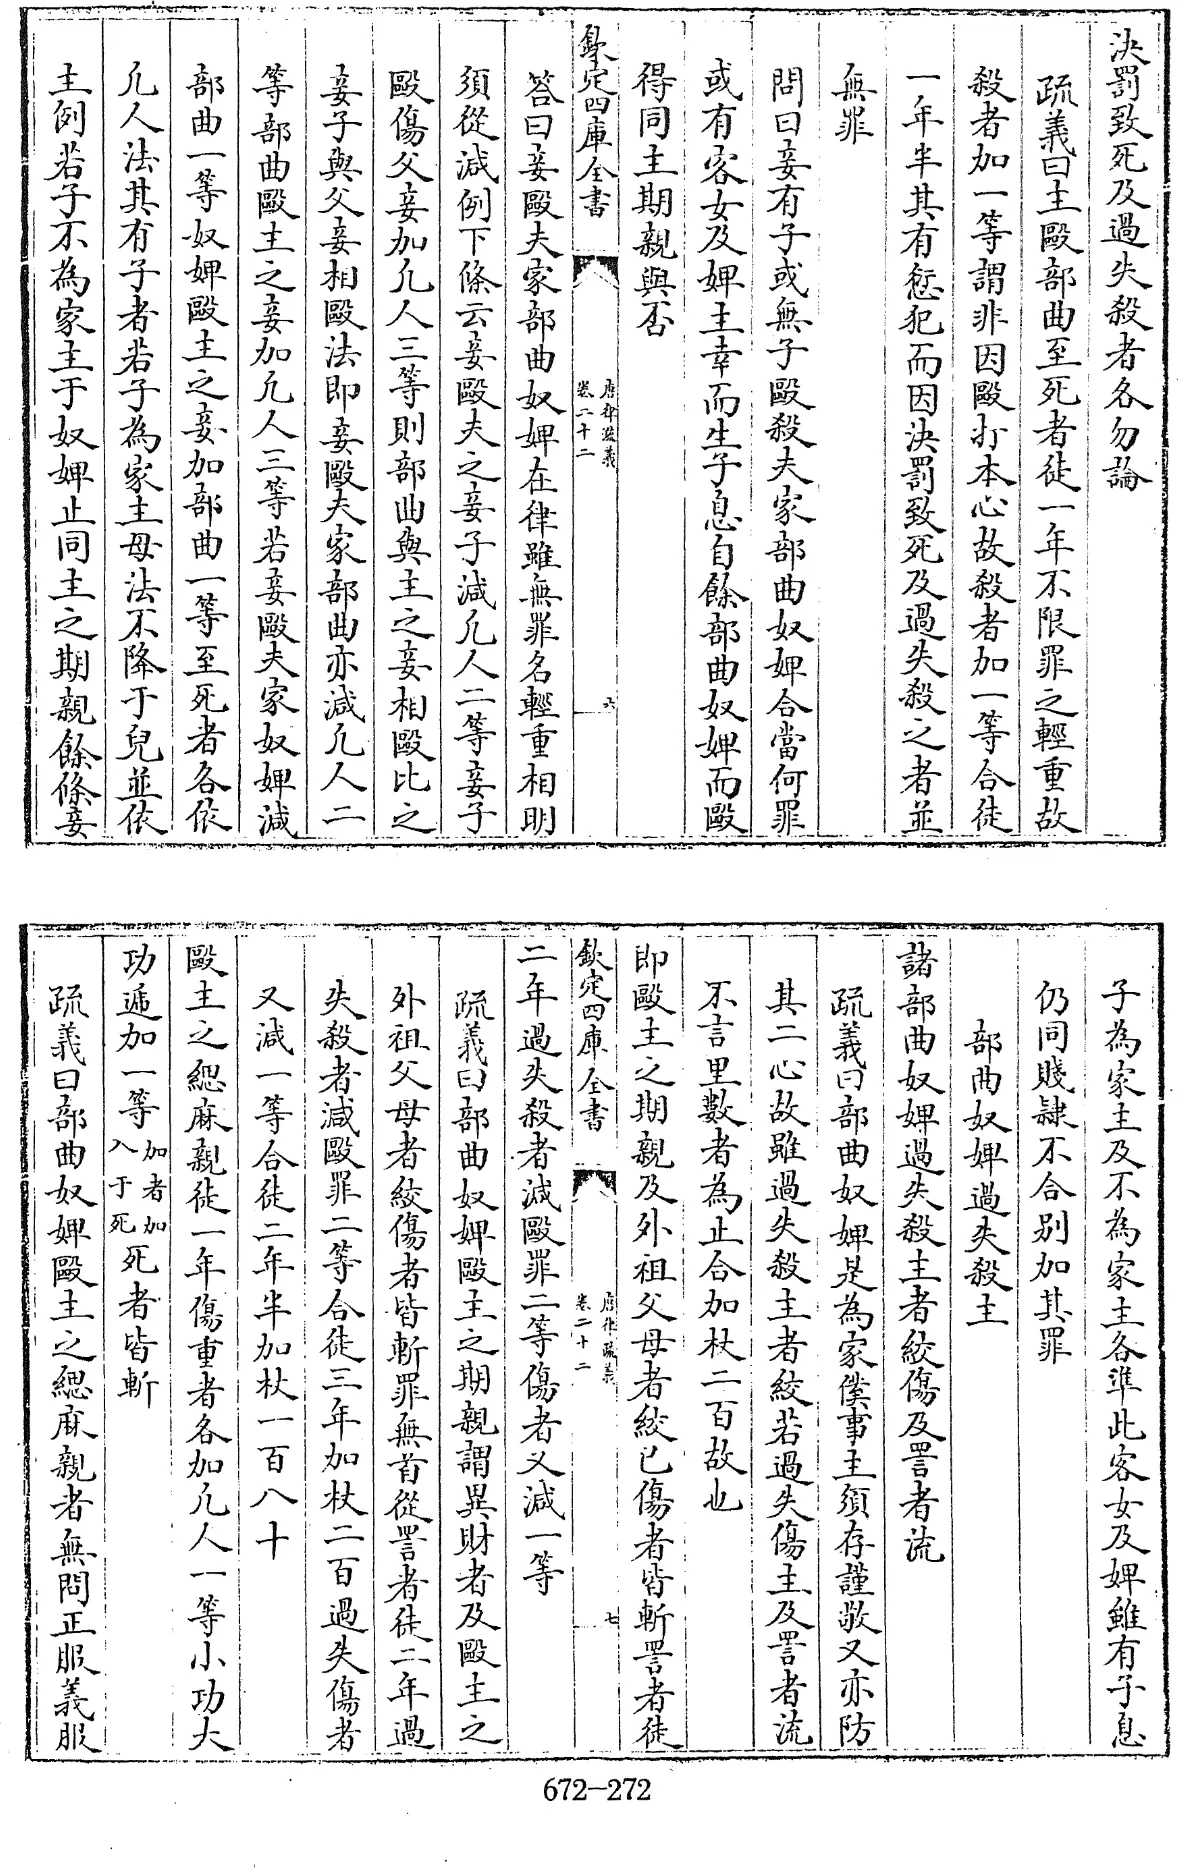 決罰致死及過失殺者各勿論
疏義曰主毆部曲至死者徒一年不限罪之輕重故
殺者加一等謂非因毆打本心故殺者加一等合徒
一年半其有愆犯而因決罰致死及過失殺之者並
無罪
問曰妾有子或無子毆殺夫家部曲奴婢合當何罪
或有客女及婢主幸而生子息自餘部曲奴婢而毆
得同主期親與否
欽定四庫全書
唐律疏義
卷二十二
六
答曰妾毆夫家部曲奴婢在律雖無罪名輕重相明
須從減例下條云妾毆夫之妾子減凡人二等妾子
毆傷父妾加凡人三等則部曲與主之妾相毆比之
妾子與父妾相毆法即妾毆夫家部曲亦減凡人二
等部曲毆主之妾加凡人三等若妾毆夫家奴婢減
部曲一等奴婢毆主之妾加部曲一等至死者各依
凡人法其有子者若子為家主母法不降于兒並依
主例若子不為家主于奴婢止同主之期親餘條妾
子為家主及不為家主各準此客女及婢雖有子息
仍同賤隷不合別加其罪
部曲奴婢過失殺主
諸部曲奴婢過失殺主者絞傷及詈者流
疏義曰部曲奴婢是為家僕事主須存謹敬又亦防
其二心故雖過失殺主者絞若過失傷主及詈者流
不言里數者為止合加杖二百故也
即毆主之期親及外祖父母者絞已傷者皆斬詈者徒
欽定四庫全書
唐律疏義
卷二十二
七
二年過失殺者減毆罪二等傷者又減一等
疏義曰部曲奴婢毆主之期親謂異財者及毆主之
外祖父母者絞傷者皆斬罪無首從詈者徒二年過
失殺者減毆罪二等合徒三年加杖二百過失傷者
又減一等合徒二年半加杖一百八十
毆主之緦麻親徒一年傷重者各加凡人一等小功大
功遞加一等加者加入于死死者皆斬
疏義曰部曲奴婢毆主之緦麻親者無問正服義服
672-272